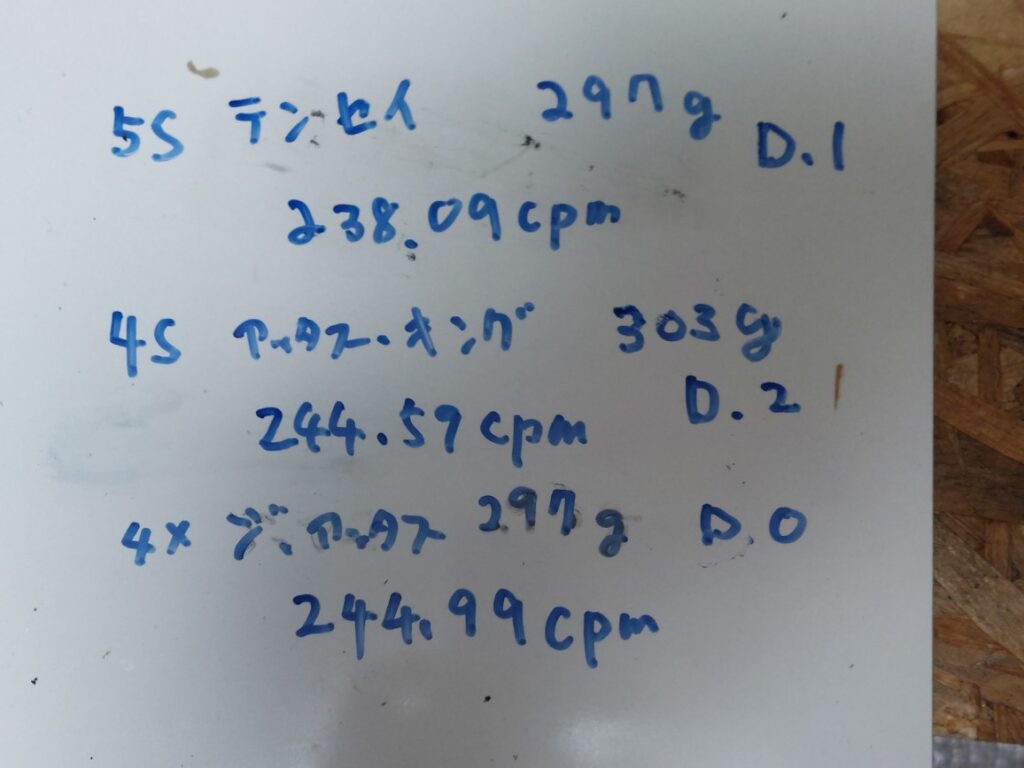 5S テンセイ 297g D.1
238.09cpm
4S アッタス・キング 303g
D.2
244.59cpm
4X ジ・アッタス 297g D.0
244.99cpm